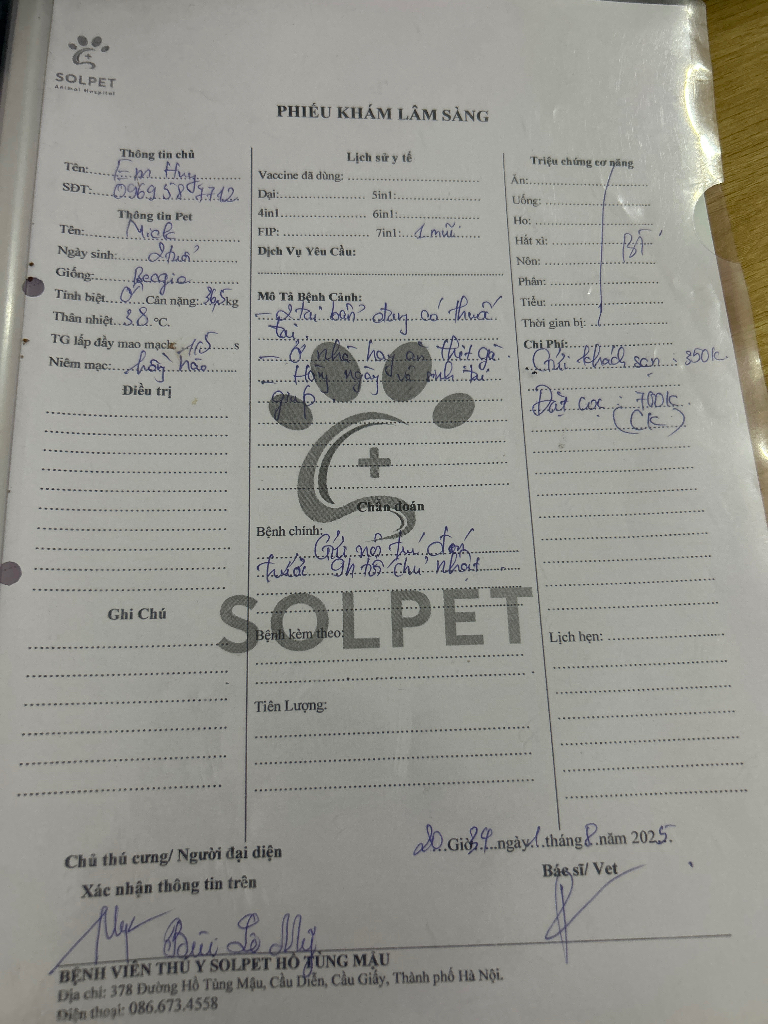 SOLPET
Animal Hospital
PHIẾU KHÁM LÂM SÀNG
Thông tin chủ
Tên: Em Huy
SĐT: 0969587712
Thông tin Pet
Tên: Mick
Ngày sinh: 2 tuổi
Giống: Beagle
Tính biệt Cân nặng: kg
Thân nhiệt 38 °C.
TG lấp đầy mao mạch 1,5 s
Niêm mạc: hồng hào
Điều trị
Ghi Chú
Lịch sử y tế
Vaccine đã dùng:
Dại: 5in1:
4in1 6in1:
FIP: 7in1: 1 mũi
Dịch Vụ Yêu Cầu:
Mô Tả Bệnh Cảnh:
- 2 tai bẩn đang có thuốc
tai.
- Ở nhà hay ăn thịt gà.
- Hàng ngày vệ sinh tai
giúp
Chẩn đoán
Bệnh chính:
Gửi nội trú đến
trước 9h tối chủ nhật
SOLPET
Bệnh kèm theo:
Tiên Lượng:
Triệu chứng cơ năng
Ăn:
Uống:
Ho:
Hắt xì: BT
Nôn:
Phân:
Tiểu:
Thời gian bị:
Chi Phí:
Gửi khách sạn: 350k.
Đặt cọc: 700k
(CK)
Lịch hẹn:
20 Giờ 34 ngày 1 tháng 8 năm 2025.
Chủ thú cưng/ Người đại diện
Xác nhận thông tin trên
Bác sĩ/ Vet
Bùi Lê Mỹ
BỆNH VIỆN THÚ Y SOLPET HỒ TÙNG MẬU
Địa chỉ: 378 Đường Hồ Tùng Mậu, Cầu Diễn, Cầu Giấy, Thành phố Hà Nội.
Điện thoại: 086.673.4558